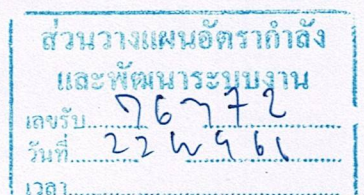 ส่วนวางแผนอัตรากำลัง
และพัฒนาระบบงาน
เลขรับ
วันที่ 22
เวลา